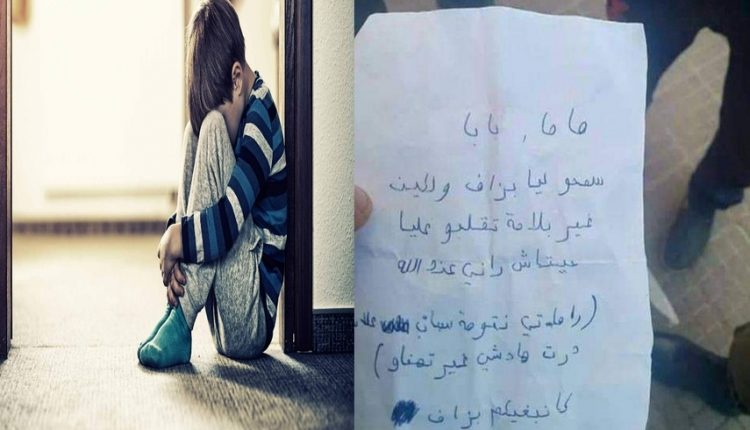 ماما , بابا
سمحو ليا بزاف ولكين
غير بلامة تقلبو عليا
حيتاش راني عند الله
(راه نتي نتومة سباب علاش
درت هادشي غير تهناو)
كانبغيكم بزاف